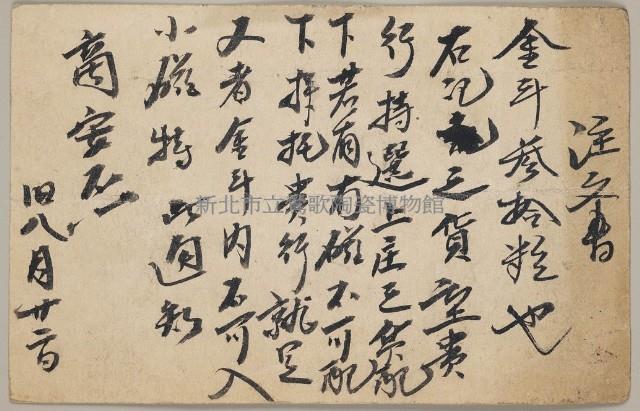 注文書
金斗叁拾粒也
右記之貨望貴
行特選上庄之貨配
下若有有磁不可配
下拜托貴行就是
又者金斗內不可入
小磁特此通知
商安不一
旧八月廿二日
新北市立鶯歌陶瓷博物館